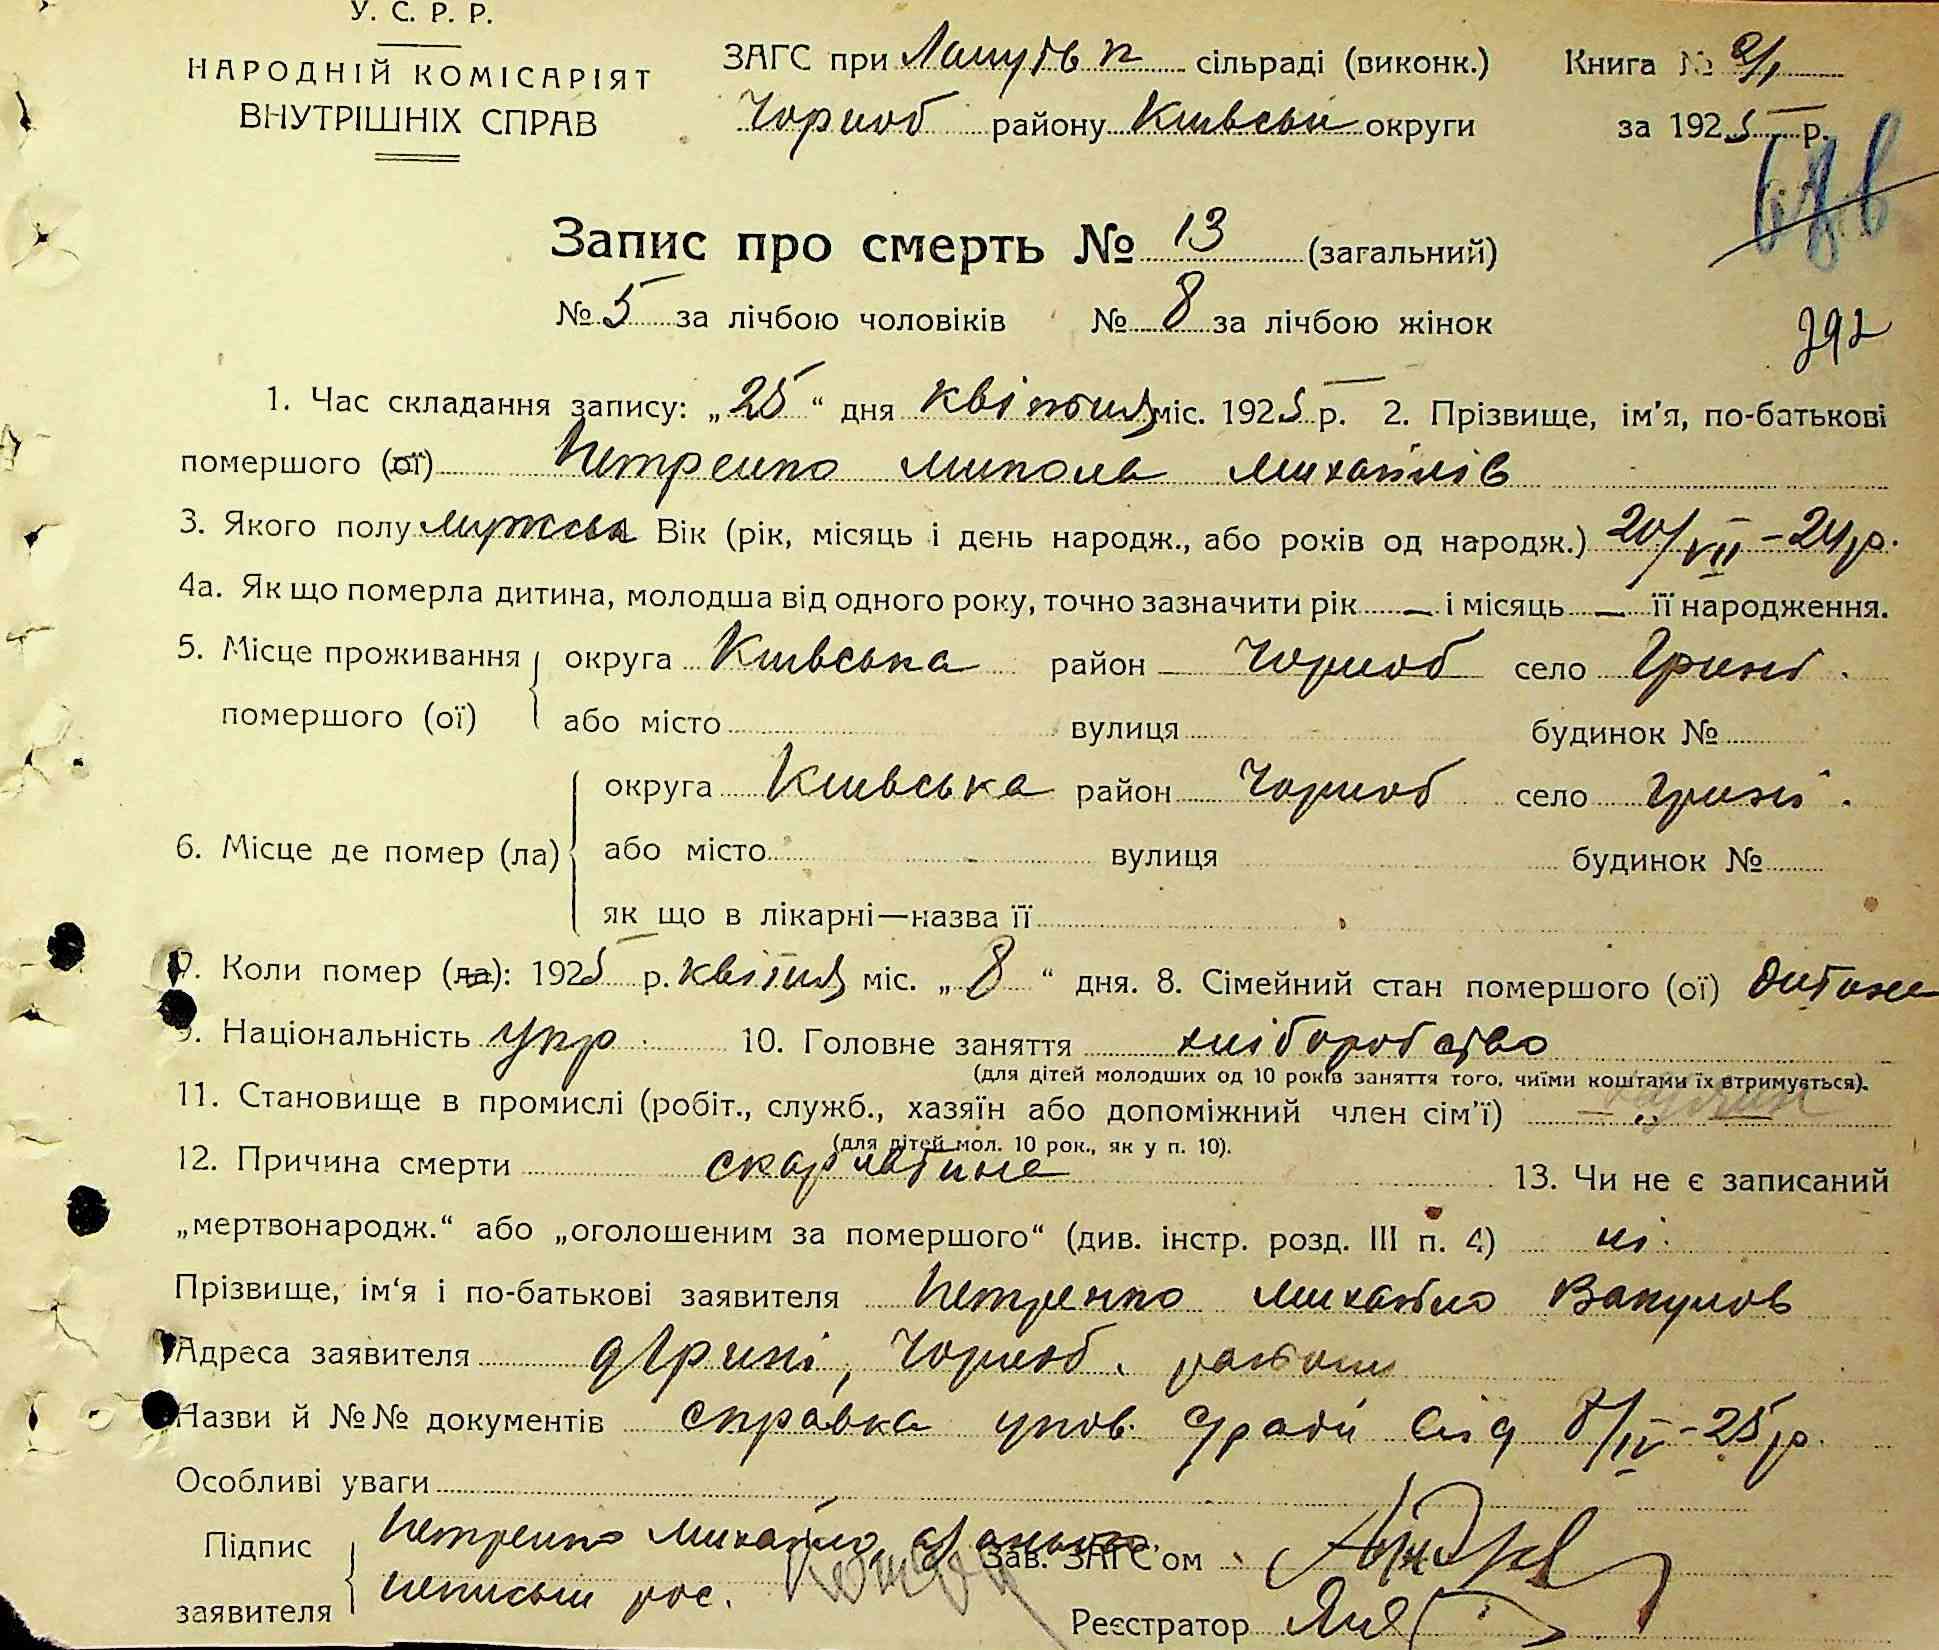 У. С. Р. Р.
НАРОДНІЙ КОМІСАРІЯТ
ВНУТРІШНІХ СПРАВ
ЗАГС при сільраді (виконк.)
Чорноб району Київськ округи
Книга №
за 1925 р.
Запис про смерть № 13 (загальний)
№ 5 за лічбою чоловіків № 8 за лічбою жінок
292
1. Час складання запису: „25“ дня квітня міс. 1925 р. 2. Прізвище, ім'я, по-батькові
помершого (ої) Петренко Микола Михайлів
3. Якого полу мужськ Вік (рік, місяць і день народж., або років од народж.) 20/VII – 24 р.
4а. Як що померла дитина, молодша від одного року, точно зазначити рік — і місяць — її народження.
5. Місце проживання помершого (ої) округа Київська район Чорноб село Грині.
або місто вулиця будинок №
6. Місце де помер (ла) округа Київська район Чорноб село Грині.
або місто вулиця будинок №
як що в лікарні—назва її
7. Коли помер (ла): 1925 р. квітня міс. „8“ дня. 8. Сімейний стан помершого (ої) дитина
9. Національність укр 10. Головне заняття хліборобство
(для дітей молодших од 10 років заняття того, чиїми коштами їх втримується).
11. Становище в промислі (робіт., служб., хазяїн або допоміжний член сім'ї) — „ —
(для дітей мол. 10 рок., як у п. 10).
12. Причина смерти скарлатина 13. Чи не є записаний
„мертвонародж.“ або „оголошеним за помершого“ (див. інстр. розд. III п. 4) ні.
Прізвище, ім'я і по-батькові заявителя Петренко Михайло Вакулов
Адреса заявителя Грині, Чорноб. району
Назви й №№ документів справка упов. с/ради від 8/IV – 25 р.
Особливі уваги
Підпис заявителя Петренко Михайло,
неписьм рос.
Зав. ЗАГС'ом
Реєстратор